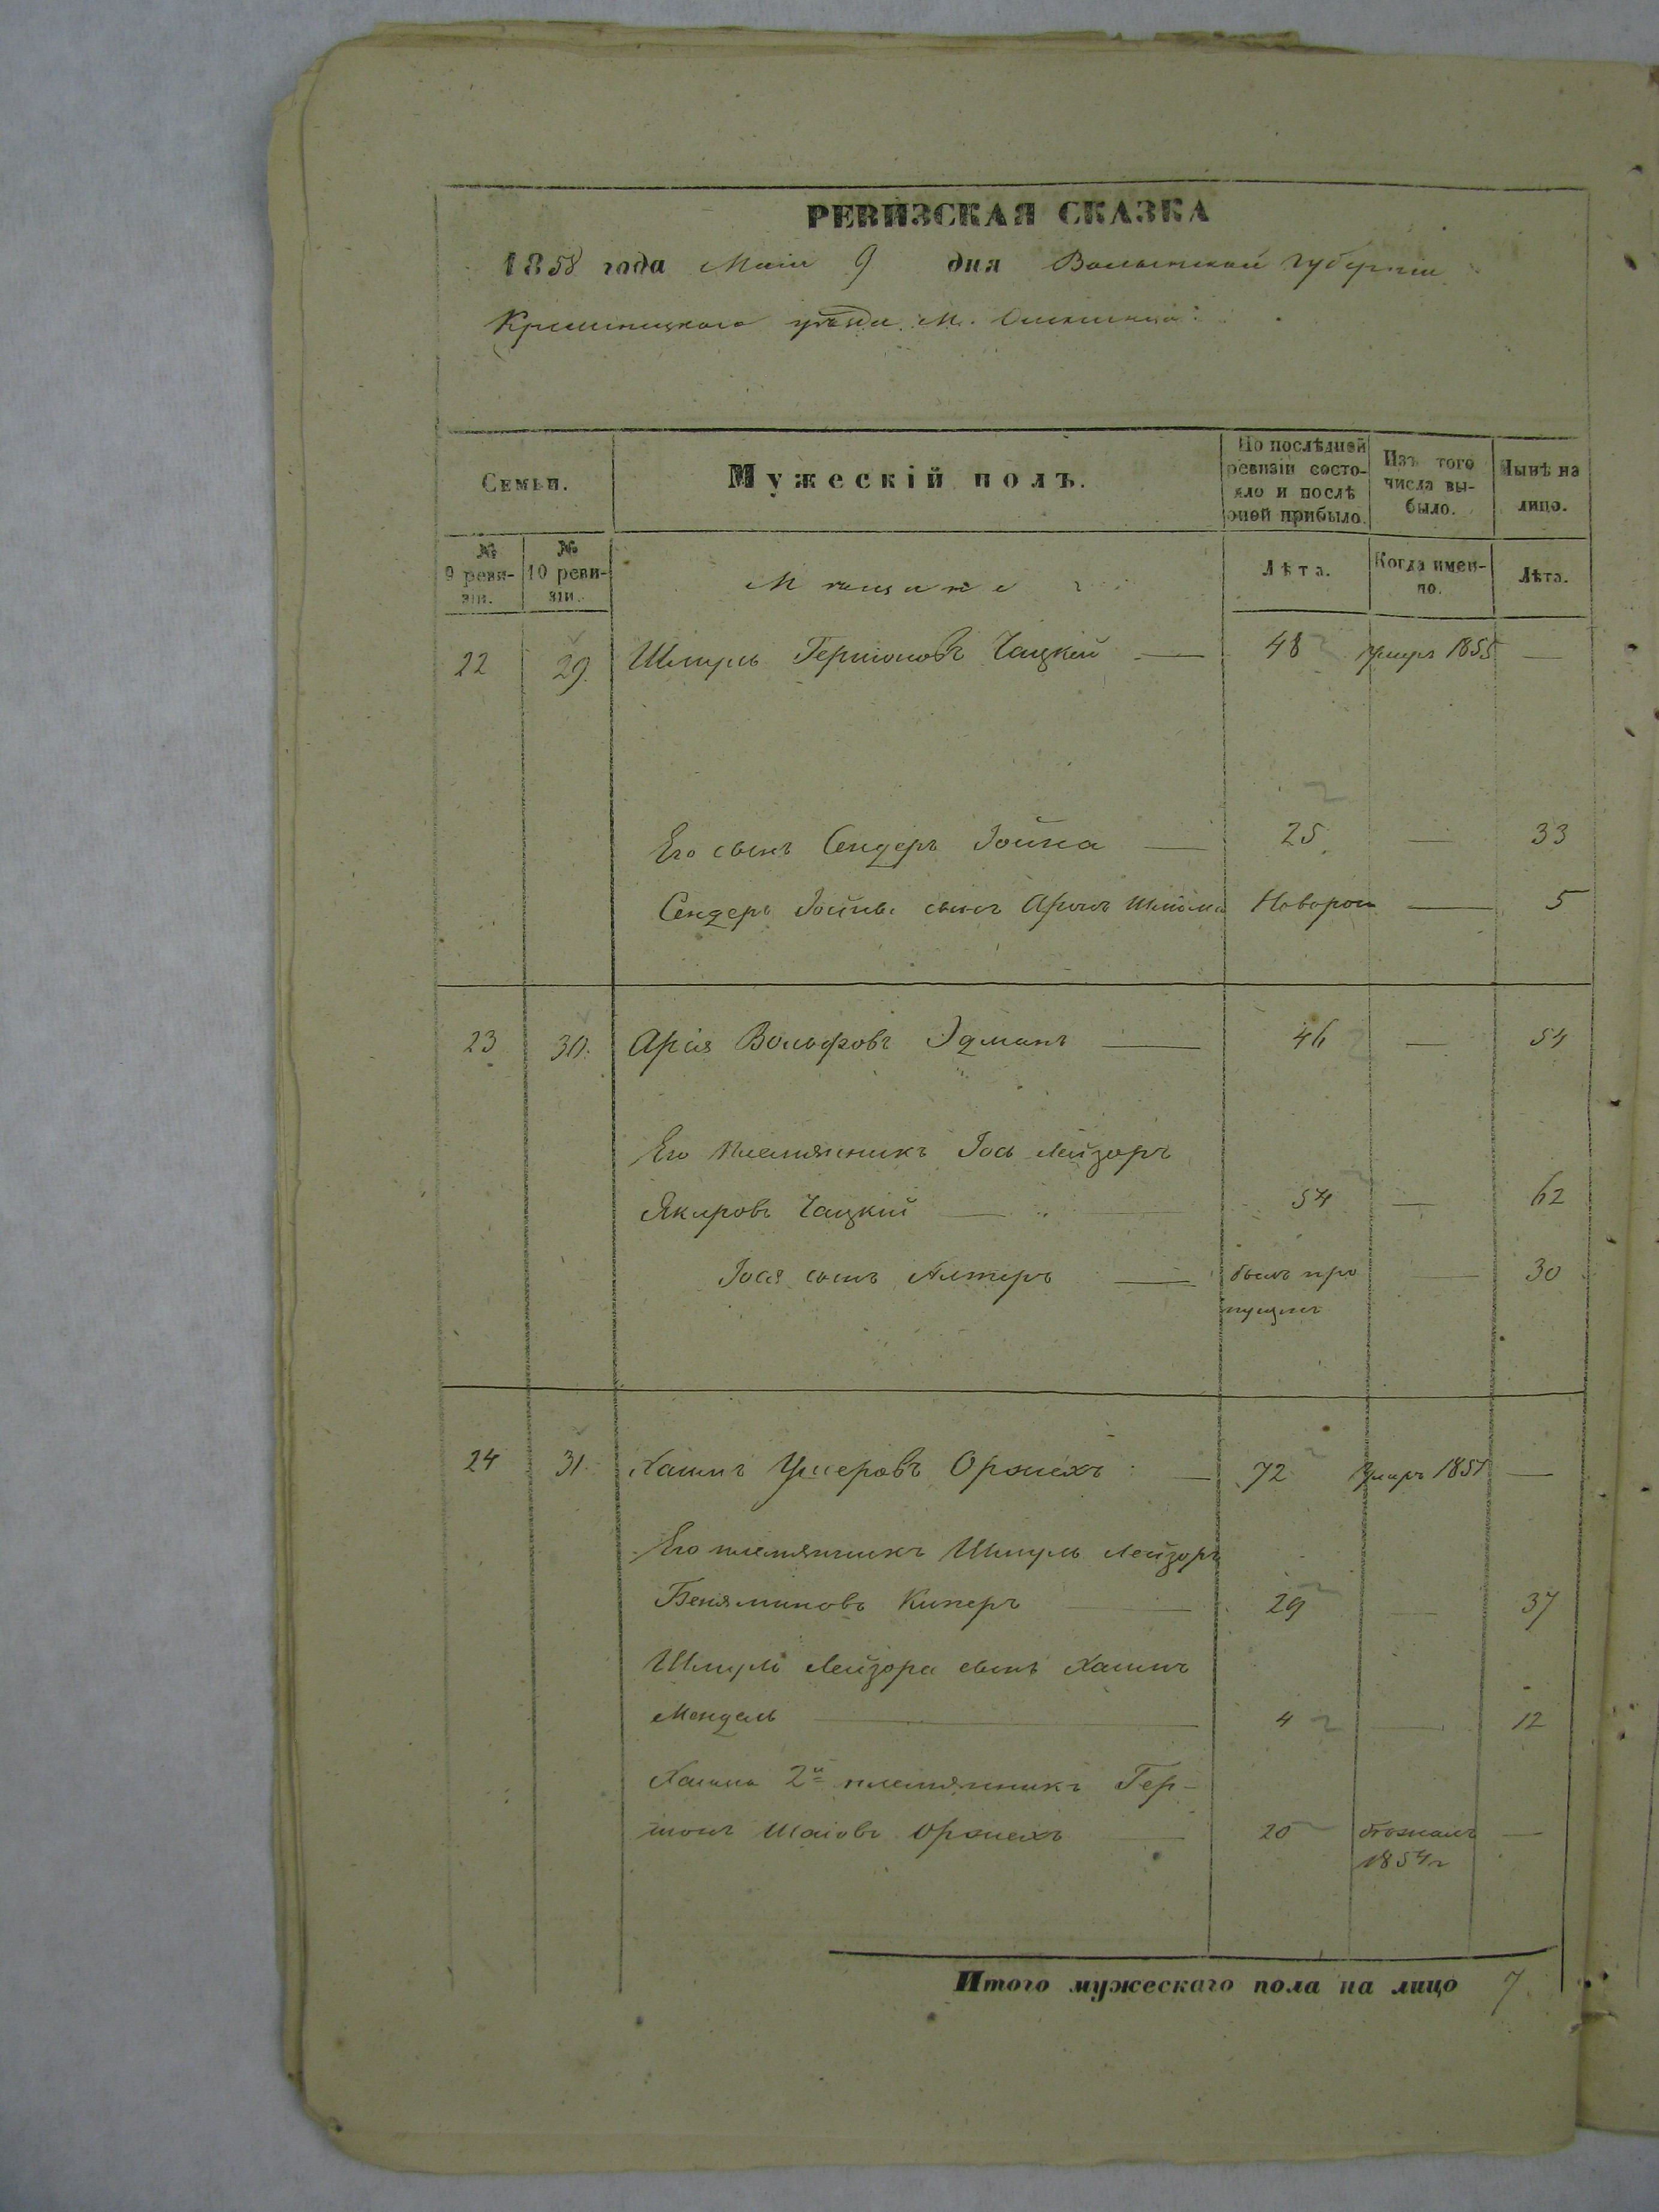 РЕВИЗСКАЯ СКАЗКА
1858 года Маія 9 дня Волынской губерніи
Кременецкаго уѣзда М.
Семьи.
Мужескій полъ.
По послѣдней ревизіи состояло и послѣ оной прибыло.
Изъ того числа выбыло.
Нынѣ на лицо.
№ 9 ревизіи.
№ 10 ревизіи.
Мѣщане
Лѣта.
Когда именно.
Лѣта.
22 29. Шмуль Гершоновъ Чацкій — 48 умеръ 1855 —
Его сынъ Сендеръ Іойна — 25 — 33
Сендеръ Іойны сынъ Аронъ Шлiома Новорож — 5
23 30. Арія Вольфовъ Эдманъ — 46 — 54
Его племянникъ Іось Лейзоръ
Якировъ Чацкій — 54 — 62
Іося сынъ Алтеръ — былъ про — 30
пущенъ
24 31. Хаимъ Ушеровъ Оржехъ — 72 Умеръ 1851 —
Его племянникъ Шмуль Лейзоръ
Беняминовъ Киперъ — 29 — 37
Шмуль Лейзора сынъ Хаимъ
Мендель — 4 — 12
Хаима 2й племянникъ Гер-
шонъ Шаiовъ Оржехъ — 20 бѣжалъ —
1854 г
Итого мужескаго пола на лицо 7